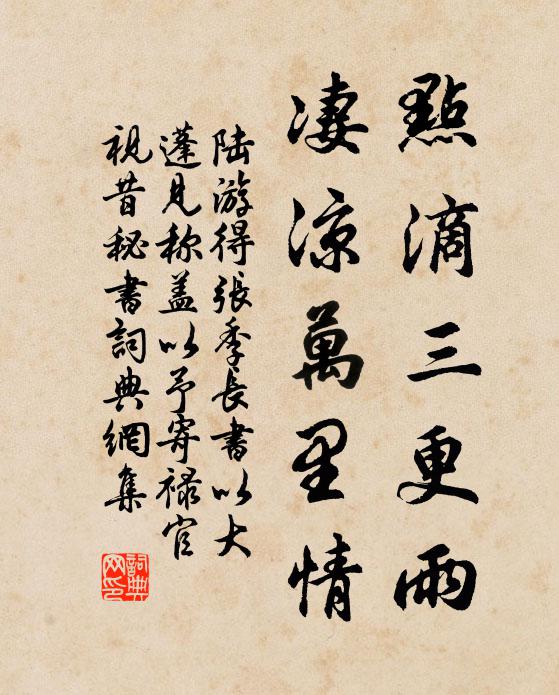 點滴三更雨
凄涼萬里情
陆游得張季長書以大
蓬見称盖以予寄禄官
視昔秘書詞典網集
詞典
网印